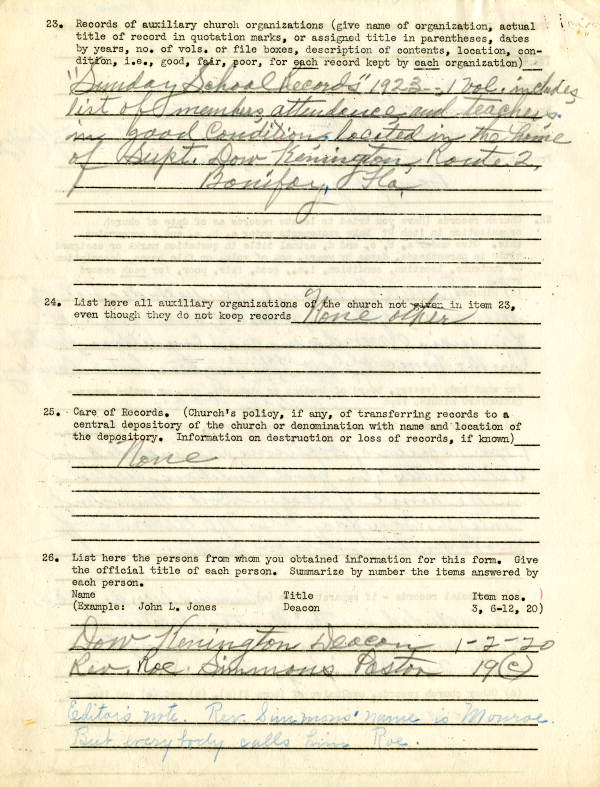 23. Records of auxiliary church organizations (give name of organization, actual
title of record in quotation marks, or assigned title in parentheses, dates
by years, no. of vols. or file boxes, description of contents, location, con-
dition, i.e., good, fair, poor, for each record kept by each organization)
"Sunday School Records" 1923-. 1 Vol. includes
list of members, attendence and teachers.
in good Condition, located in the home
of Supt. Dow Kenington, Route 2,
Bonifay, Fla,
24. List here all auxiliary organizations of the church not given in item 23,
even though they do not keep records None other
25. Care of Records. (Church's policy, if any, of transferring records to a
central depository of the church or denomination with name and location of
the depository. Information on destruction or loss of records, if known)
None
26. List here the persons from whom you obtained information for this form. Give
the official title of each person. Summarize by number the items answered by
each person.
Name Title Item nos.
(Example: John L. Jones Deacon 3, 6-12, 20)
Dow Kenington Deacon 1-2-20
Rev. Roe Simmons Pastor 19(c)
Editor's note. Rev. Simmons' name is Monroe.
But everybody calls him Roe.